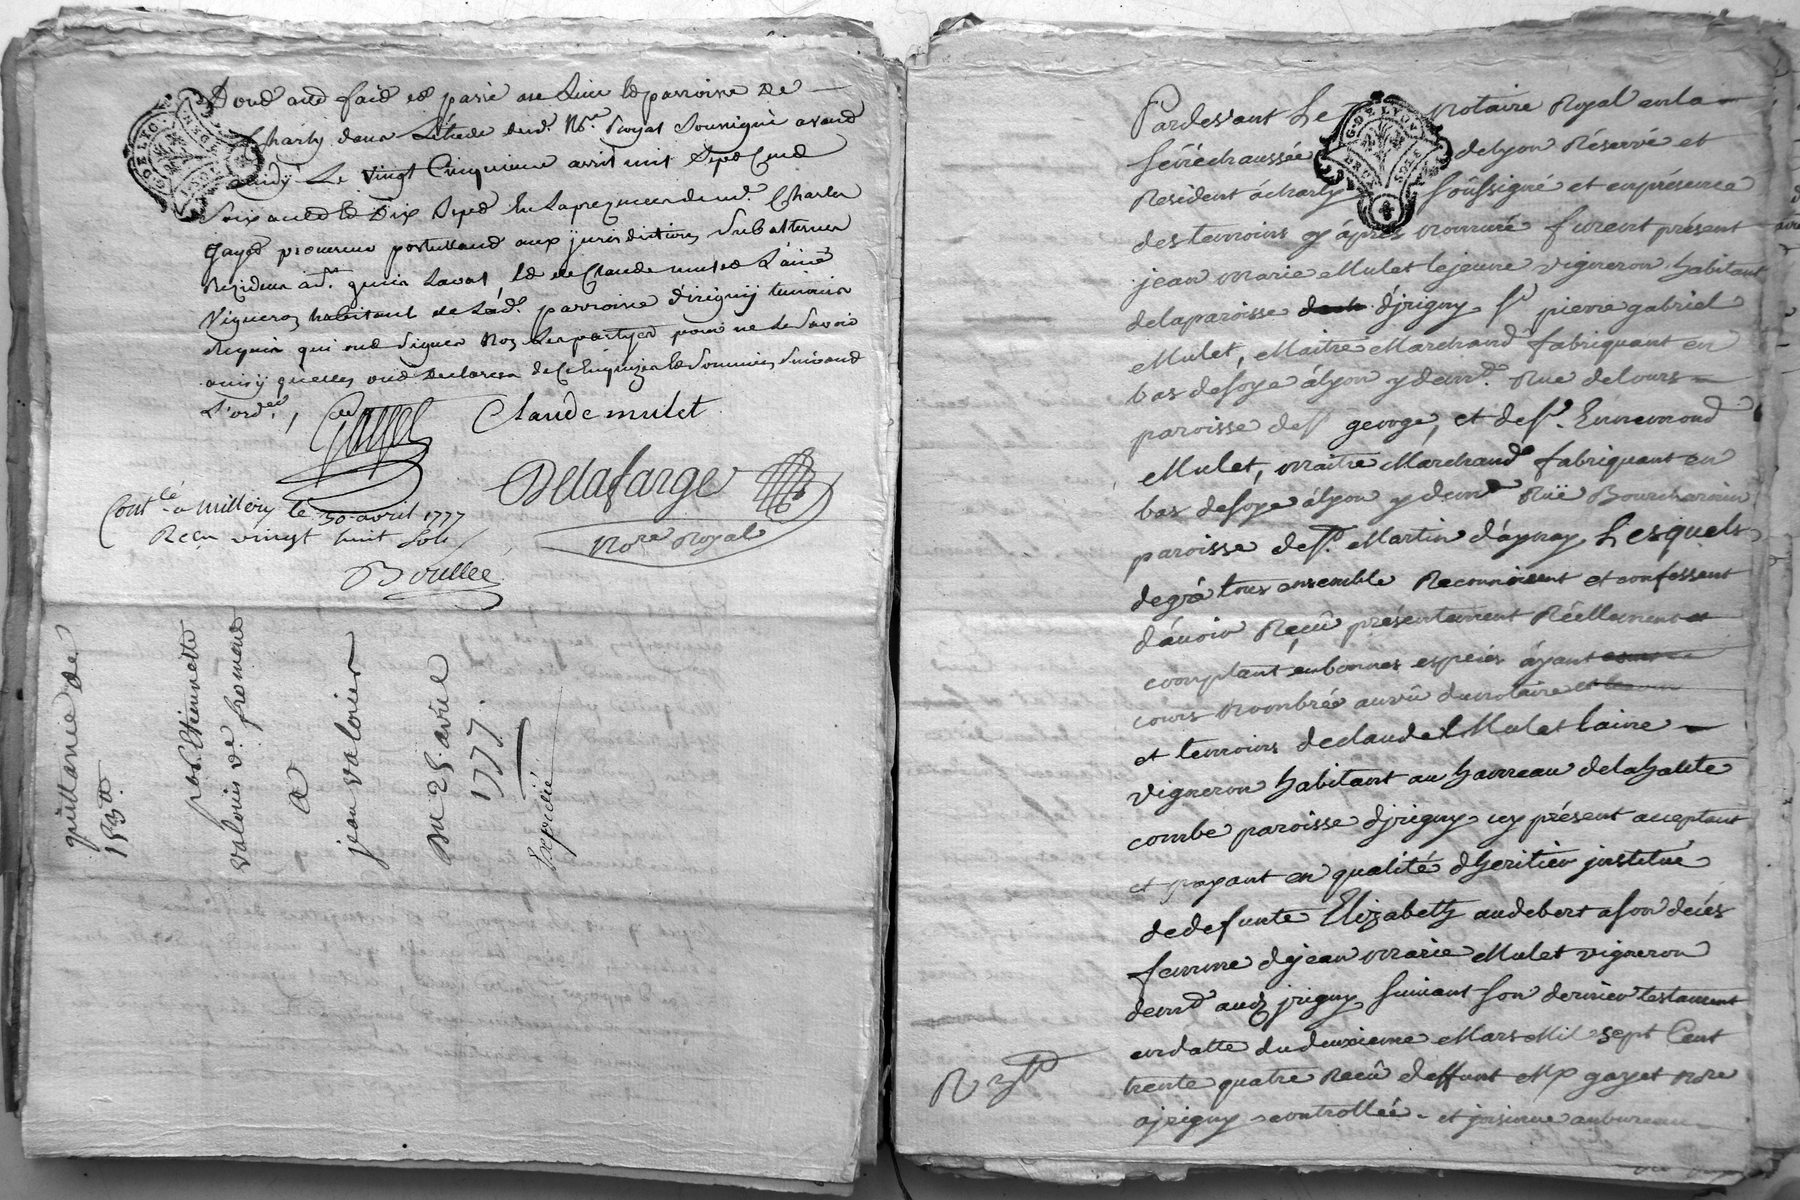 Dont acte fait et passé au lieu et parroisse de
Charly dans l'étude dud. Nre. Royal soussigné avant
midy Le vingt Cinquieme avril mil sept Cent
soixante et dix sept En la presence de mr. Charles
Gayet procureur postullant aux jurisdictions subalternes
Résident a st. genis Laval, et de Claude mulet L'ainé
Vigneron habitant de Lad. parroisse d'irigny temoins
Requis qui ont signés Non Les partyes pour ne le savoir
ainsy qu'elles ont declarées de ce Enquises et sommées suivant
L'ordce.,
Gayet
Claude mulet
Delafarge
Nore Royal
Contlé a Millery le 30 avril 1777
Reçu vingt huit sols
Boullée
quittance de
153tt
par Etiennette
valouis ve. fromene
a
jean valouis
Du 25 avril
1777.
Expedié
G. DE LYON
G. DE LYON
Pardevant Le notaire Royal en la
sénéchaussée de Lyon Réservé et
Résident à charly soussigné et en présence
des temoins cy après nommé furent présent
jean marie Mulet le jeune vigneron habitant
de la paroisse d'jrigny sr pierre gabriel
Mulet, Maitre Marchand fabriquant en
bas de soye à lyon y demt. Rue de lours
paroisse de st george, et de sr. Ennemond
Mulet, maitre Marchand fabriquant en
bas de soye à lyon y demt Ruë Bourchanin
paroisse de st. Martin d'aynay Lesquels
de gré tous ensemble Reconnoissent et confessent
d'avoir Reçû présentement Réellement et
comptant en bonnes espeies ayant
cours nombrée au vû du notaire
et temoins de claude Mulet l'aine
vigneron habitant au hameau de la haute
combe paroisse d'jrigny icy présent acceptant
et payant en qualité d'heritier jnstitué
de defunte Elizabeth audebert a son décés
femme de jean marie Mulet vigneron
demt aud jrigny suivant son dernier testament
en datte du deuxieme Mars Mil sept Cent
trente quatre Recû deffunt Me gayet nore
a jrigny controllée et jnsinué au bureau
R 3tt